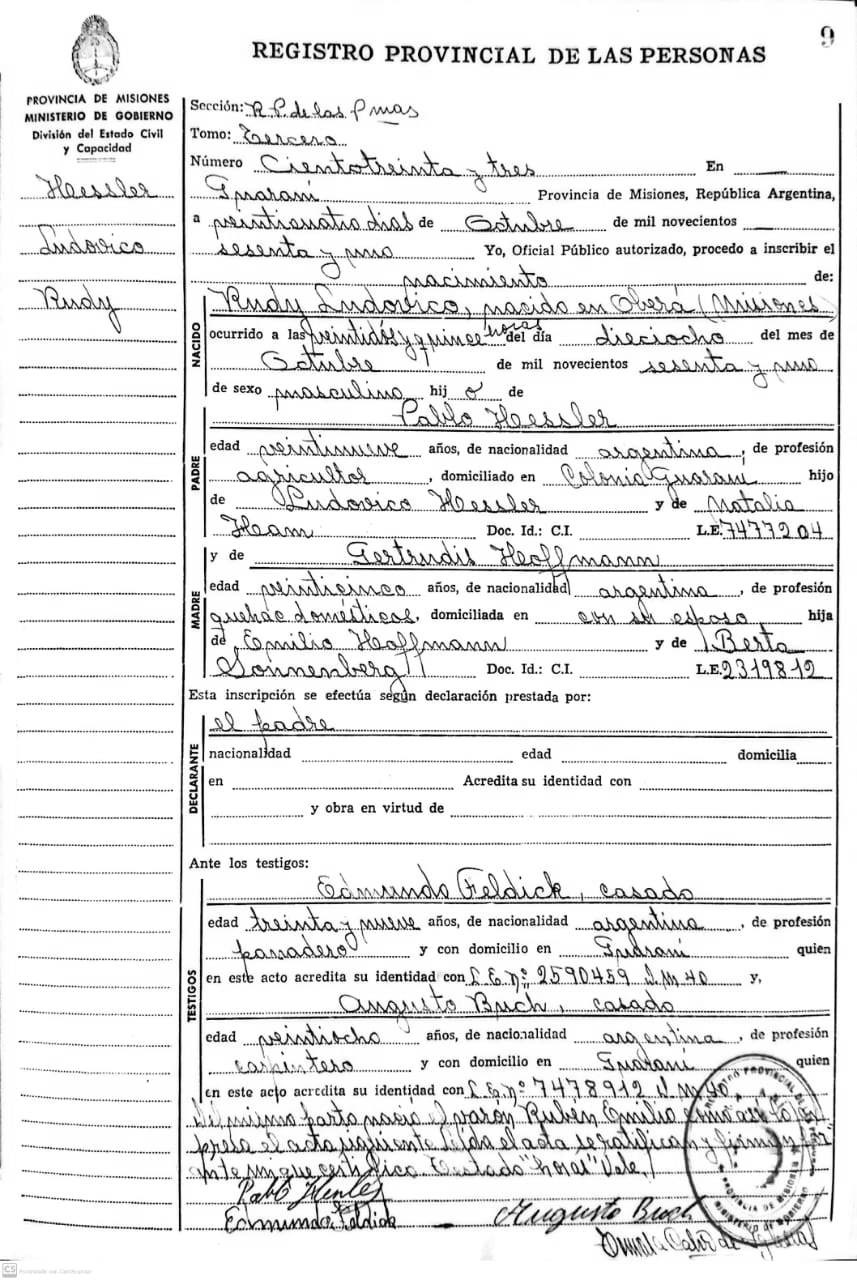 9
REGISTRO PROVINCIAL DE LAS PERSONAS
PROVINCIA DE MISIONES
MINISTERIO DE GOBIERNO
División del Estado Civil
y Capacidad
Hessler
Ludovico
Rudy
Sección: R.P. de las Pnas
Tomo: Tercero
Número Cientotreinta y tres En
Guaraní Provincia de Misiones, República Argentina,
a veinticuatro dias de Octubre de mil novecientos
sesenta y uno Yo, Oficial Público autorizado, procedo a inscribir el
nacimiento de:
NACIDO
Rudy Ludovico, nacido en Oberá (Misiones)
ocurrido a las veintidós y quince horas del día dieciocho del mes de
Octubre de mil novecientos sesenta y uno
de sexo masculino hij o de
PADRE
Pablo Hessler
edad veintinueve años, de nacionalidad argentina, de profesión
agricultor, domiciliado en Colonia Guaraní hijo
de Ludovico Hessler y de Natalia
Ham Doc. Id.: C.I. L.E. 7477204
MADRE
y de Gertrudis Hoffmann
edad veinticinco años, de nacionalidad argentina, de profesión
quehac domésticos, domiciliada en con su esposo hija
de Emilio Hoffmann y de Berta
Sonnenberg Doc. Id.: C.I. L.E. 2319812
Esta inscripción se efectúa según declaración prestada por:
DECLARANTE
el padre
nacionalidad edad domicilia
en Acredita su identidad con
y obra en virtud de
Ante los testigos:
TESTIGOS
Edmundo Feldick, casado
edad treinta y nueve años, de nacionalidad argentina, de profesión
panadero y con domicilio en Guaraní quien
en este acto acredita su identidad con L.E. nº 2590459 D.M 40 y,
Augusto Buch, casado
edad veintiocho años, de nacionalidad argentina, de profesión
carpintero y con domicilio en Guaraní quien
en este acto acredita su identidad con L.E. nº 7478912 D.M 40
Del mismo parto nació el varón Rubén Emilio como así lo ex
presa el acta siguiente leída el acta se ratifican y firman por
ante mi que certifico. Testado "horas" Vale.
Edmundo Feldick
Augusto Buch
REGISTRO PROVINCIAL DE
PROVINCIA DE MISIONES
MINISTERIO DE GOBIERNO
CS